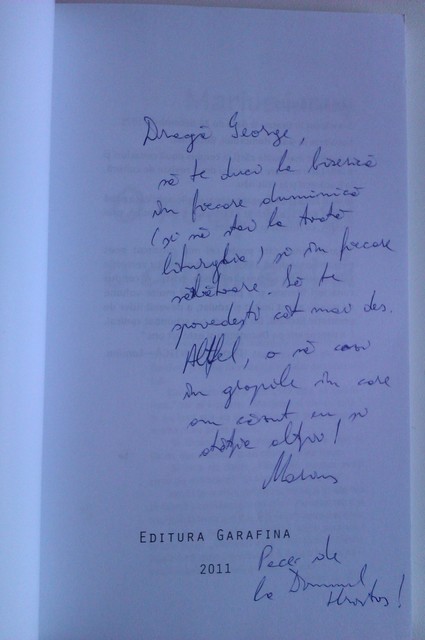 Dragă George,
să te duci la biserică
în fiecare duminică
(și să stai la toată
liturghia) și în fiecare
sărbătoare. Să te
spovedești cât mai des.
Altfel, o să cazi
în gropile în care
am căzut eu și
atâția alții!
Marius
EDITURA GARAFINA
2011
Pace de
la Domnul
Hristos!